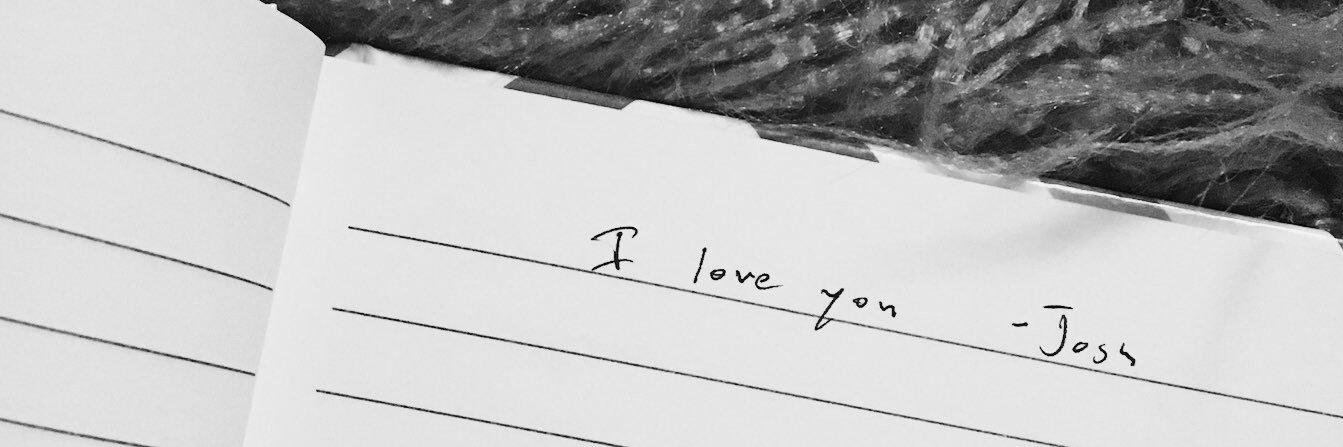 I love you -Josh